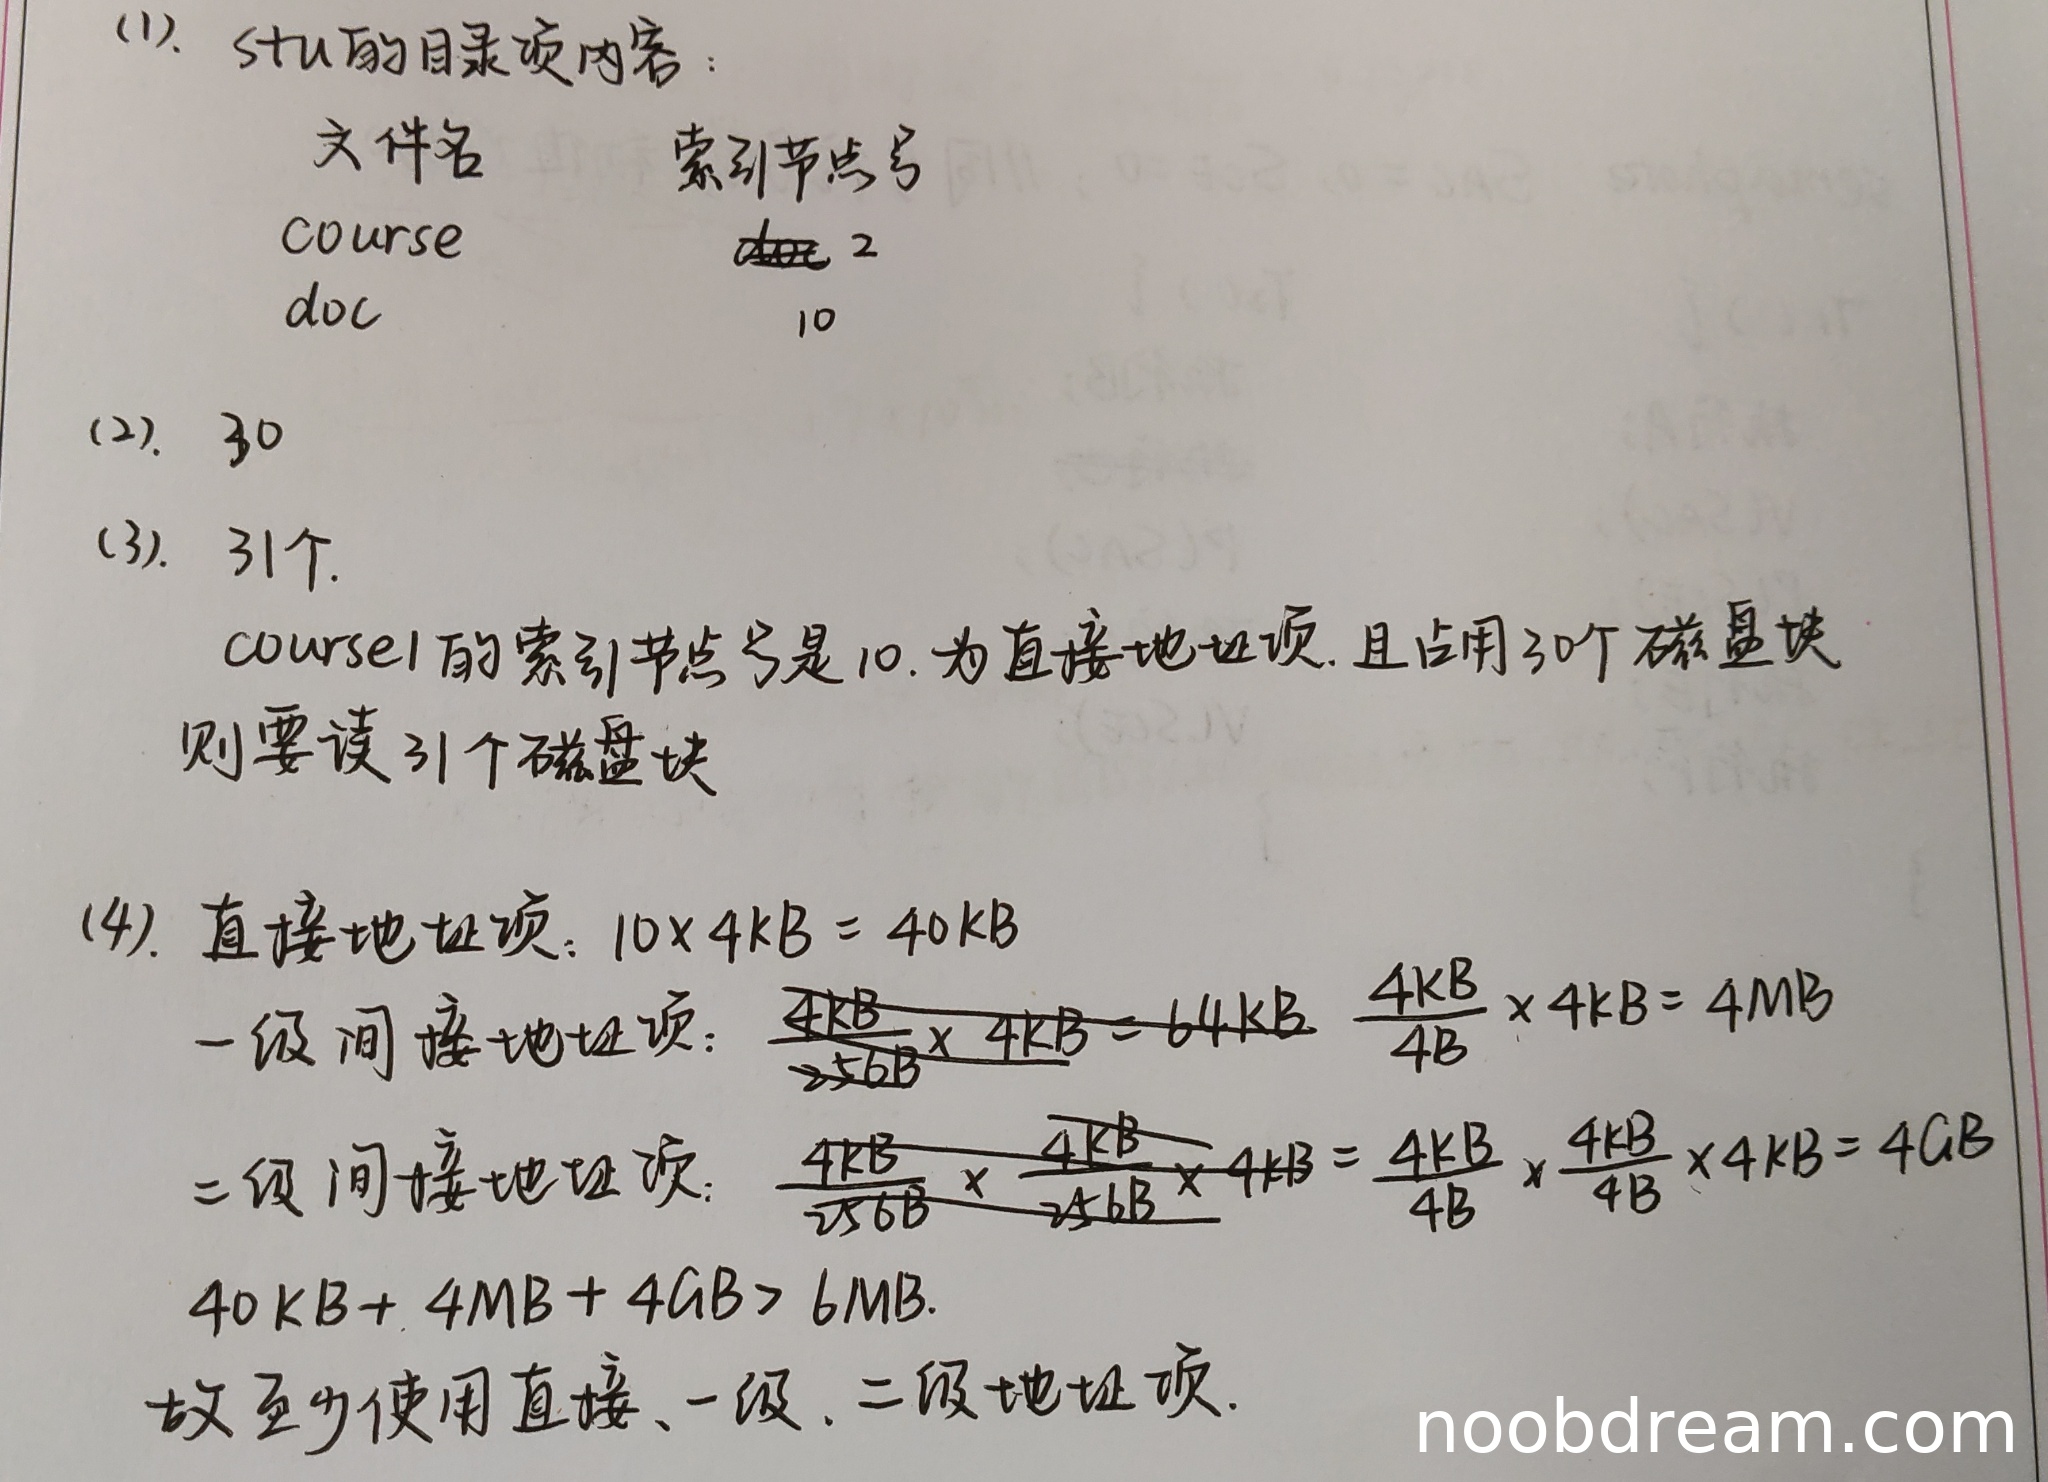 (1). stu的目录项内容:
文件名 索引节点号
course 2
doc 10
(2). 30
(3). 31个.
course1的索引节点号是10.为直接地址项.且占用30个磁盘块
则要读31个磁盘块
(4). 直接地址项: 10×4KB = 40KB
一级间接地址项: 4KB/256B × 4KB = 64KB 4KB/4B × 4KB = 4MB
二级间接地址项: 4KB/256B × 4KB/256B × 4KB = 4KB/4B × 4KB/4B × 4KB = 4GB
40KB + 4MB + 4GB > 6MB.
故至少使用直接、一级、二级地址项.
noobdream.com